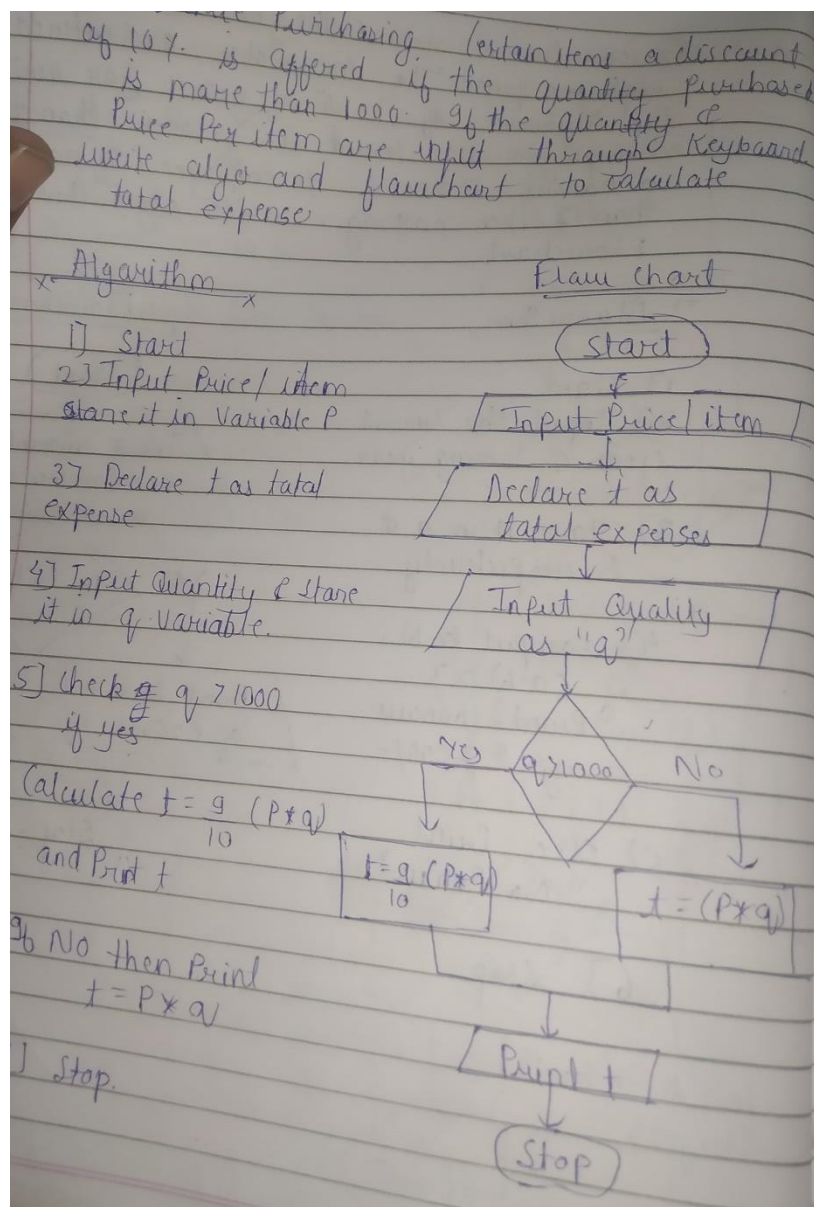 Purchasing, Certain items a discount
of 10%. is offered if the quantity Purchased
is more than 1000. If the quantity &
Price Per item are input through Keyboard
write algo and flowchart to calculate
total expense
Algorithm
1] Start
2] Input Price/ item
store it in Variable P
3] Declare t as total
expense
4] Input Quantity & store
it in q variable.
5] Check q > 1000
if yes
Calculate t = 9/10 (P*q)
and Print t
If No then Print
t = P * q
] Stop.
Flow Chart
Start
Input Price/ item
Declare t as
total expenses
Input Quality
as "q"
q>1000
Yes
No
t = 9/10 (P*q)
t = (P*q)
Print t
Stop